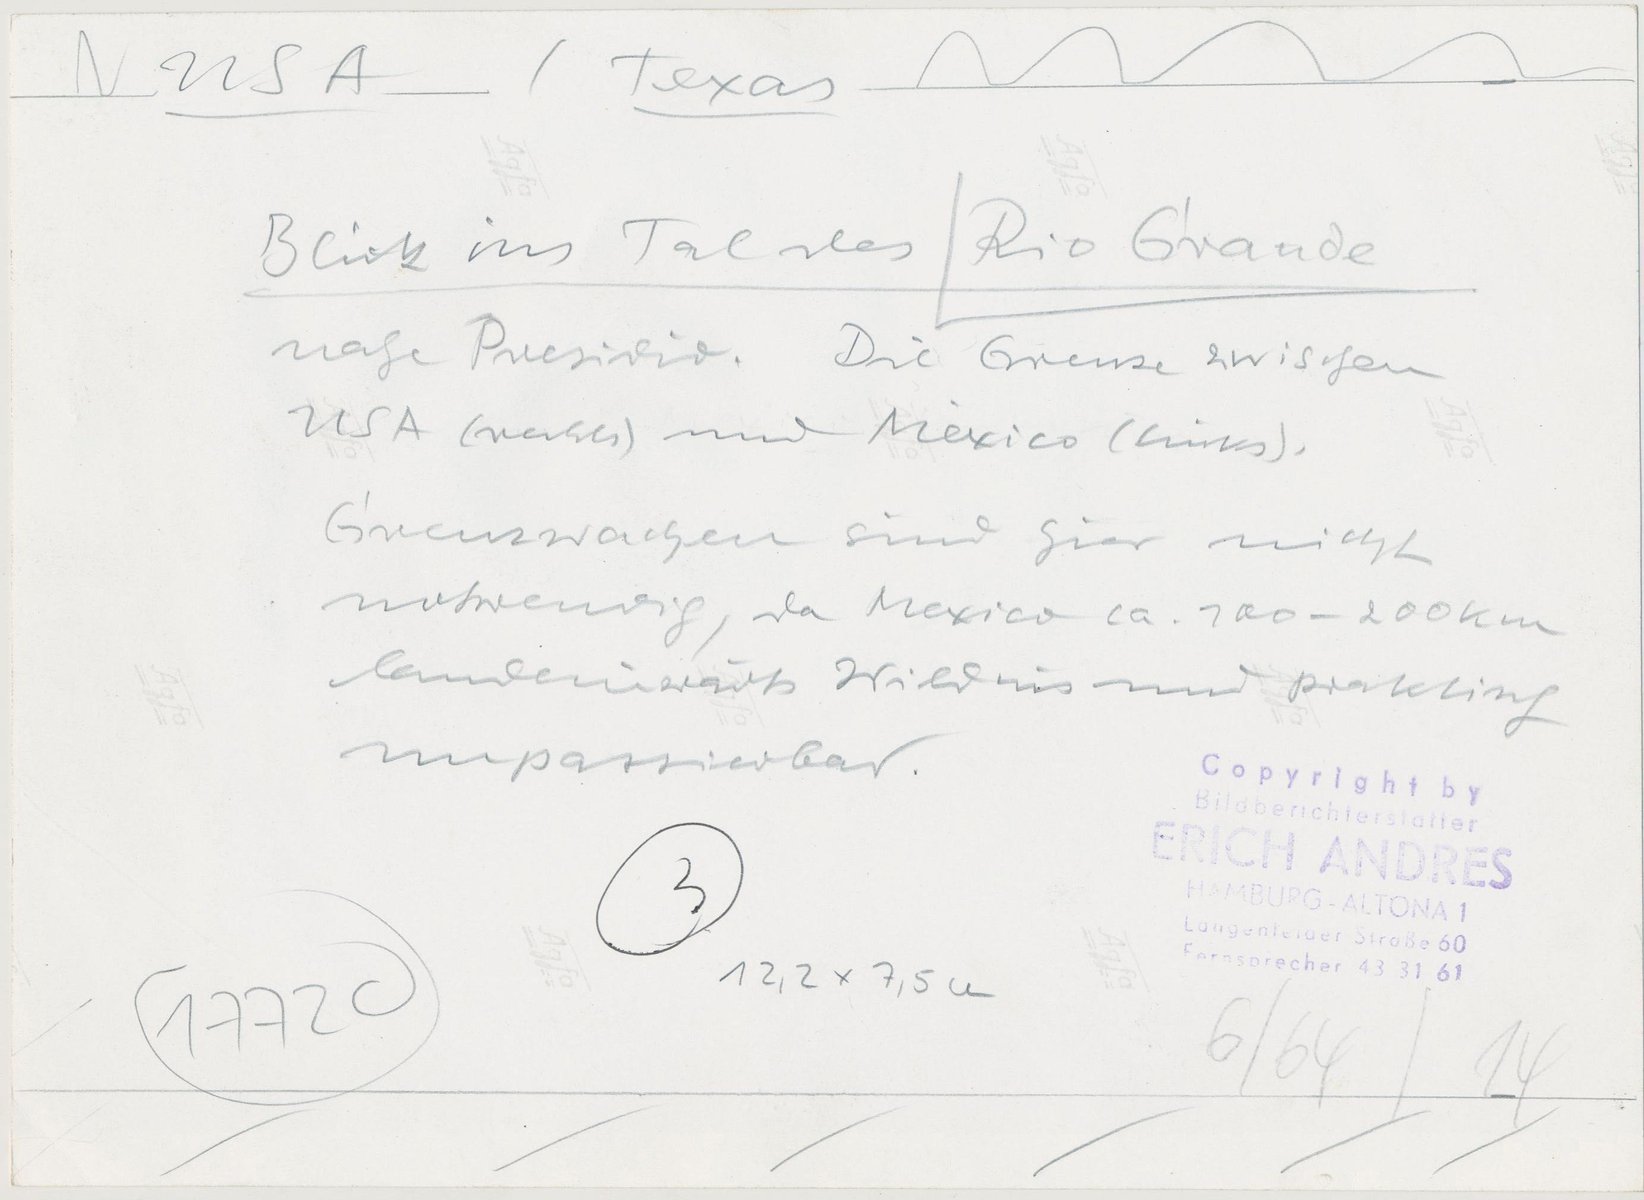 N USA / Texas
Blick ins Tal des Rio Grande
nahe Presidio. Die Grenze zwischen
USA (rechts) und Mexico (links).
Grenzwachen sind hier nicht
notwendig, da Mexico ca. 100-200 km
landeinwärts Wildnis und praktisch
unpassierbar.
Copyright by
Bildberichterstatter
ERICH ANDRES
HAMBURG-ALTONA 1
Langenfelder Straße 60
Fernsprecher 43 31 61
3
12,2 x 7,5 cm
17720
6/64 / 14
Agfa
Agfa
Agfa
Agfa
Agfa
Agfa
Agfa
Agfa
Agfa
Agfa
Agfa